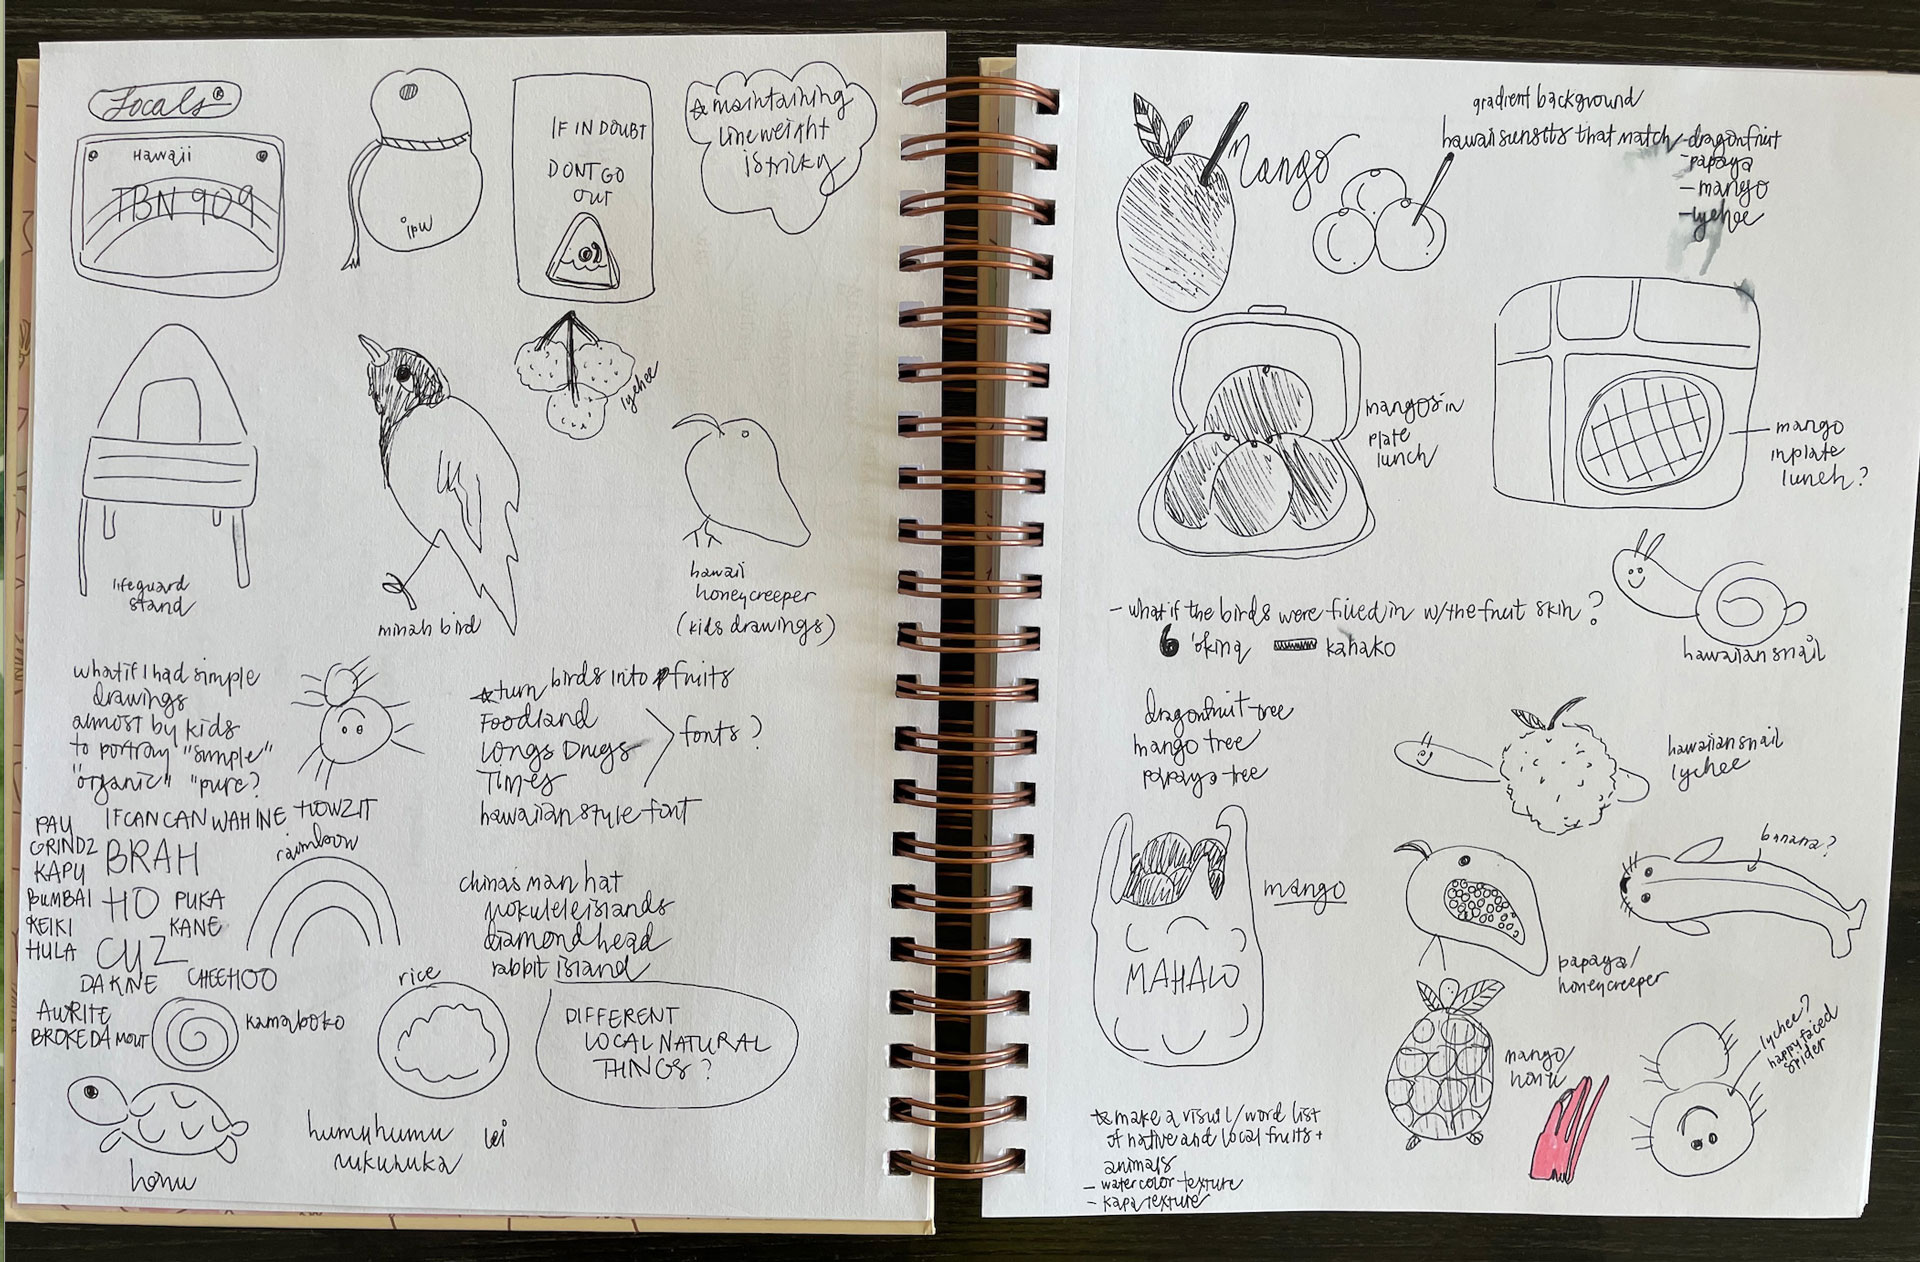 Locals®
HAWAII
TBN 909
ipu
IF IN DOUBT
DONT GO
OUT
☆ maintaining
lineweight
is tricky
lifeguard
stand
minah bird
lychee
hawaii
honeycreeper
(kids drawings)
what if I had simple
drawings
almost by kids
to portray "simple"
"organic" "pure?
☆ turn birds into fruits
Foodland
Longs Drugs
Times
fonts?
hawaiian style font
PAU
GRINDZ
KAPU
BUMBAI
KEIKI
HULA
IF CAN CAN
WAHINE
HOWZIT
BRAH
HO
PUKA
KANE
CUZ
DA KINE
CHEEHOO
AURITE
BROKE DA MOUT
rainbow
chinas man hat
mokulele islands
diamond head
rabbit island
kamaboko
rice
DIFFERENT
LOCAL NATURAL
THINGS?
honu
humuhumu
nukunuku
lei
mango
gradient background
hawaii sunsets that match
-dragonfruit
-papaya
-mango
-lychee
mangos in
plate
lunch
mango
in plate
lunch?
- what if the birds were filled in w/ the fruit skin?
'okina
kahako
hawaiian snail
dragonfruit tree
mango tree
papaya tree
hawaiian snail
lychee
MAHALO
mango
papaya/
honeycreeper
banana?
mango/
honu
lychee?
happy faced
spider
☆ make a visual/word list
of native and local fruits +
animals
- watercolor texture
- kapa texture